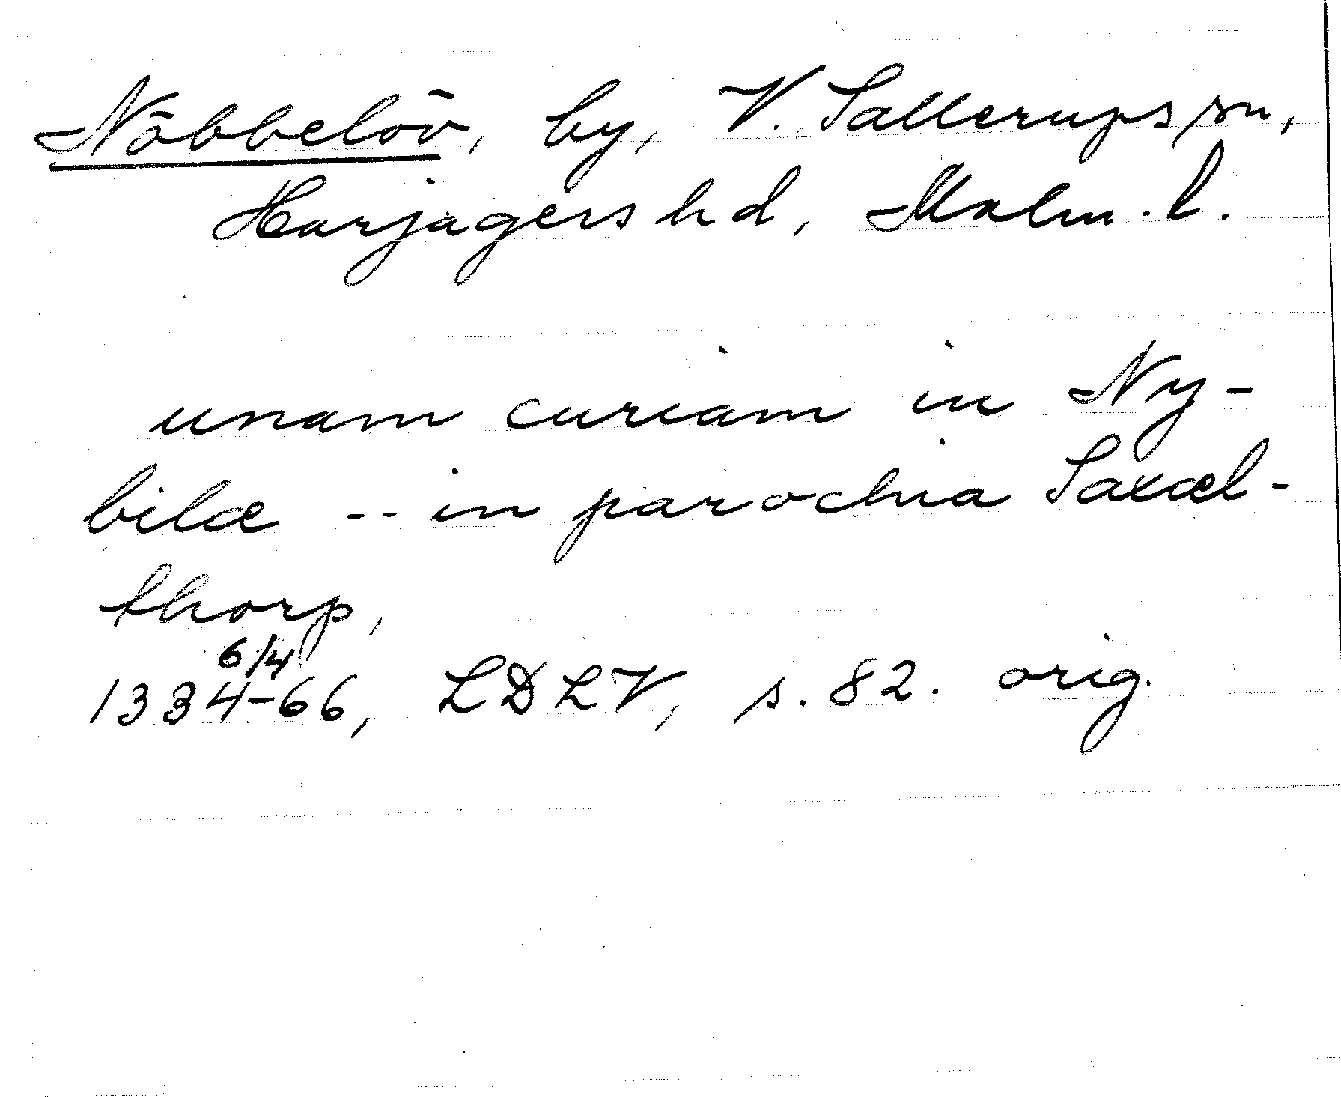 Nöbbelöv, by, V. Sallerups sn,
Harjagers hd, Malm. l.
unam curiam in Ny-
bilæ -- in parochia Saxæl-
thorp,
6/4
1334-66, LDLV, s. 82. orig.